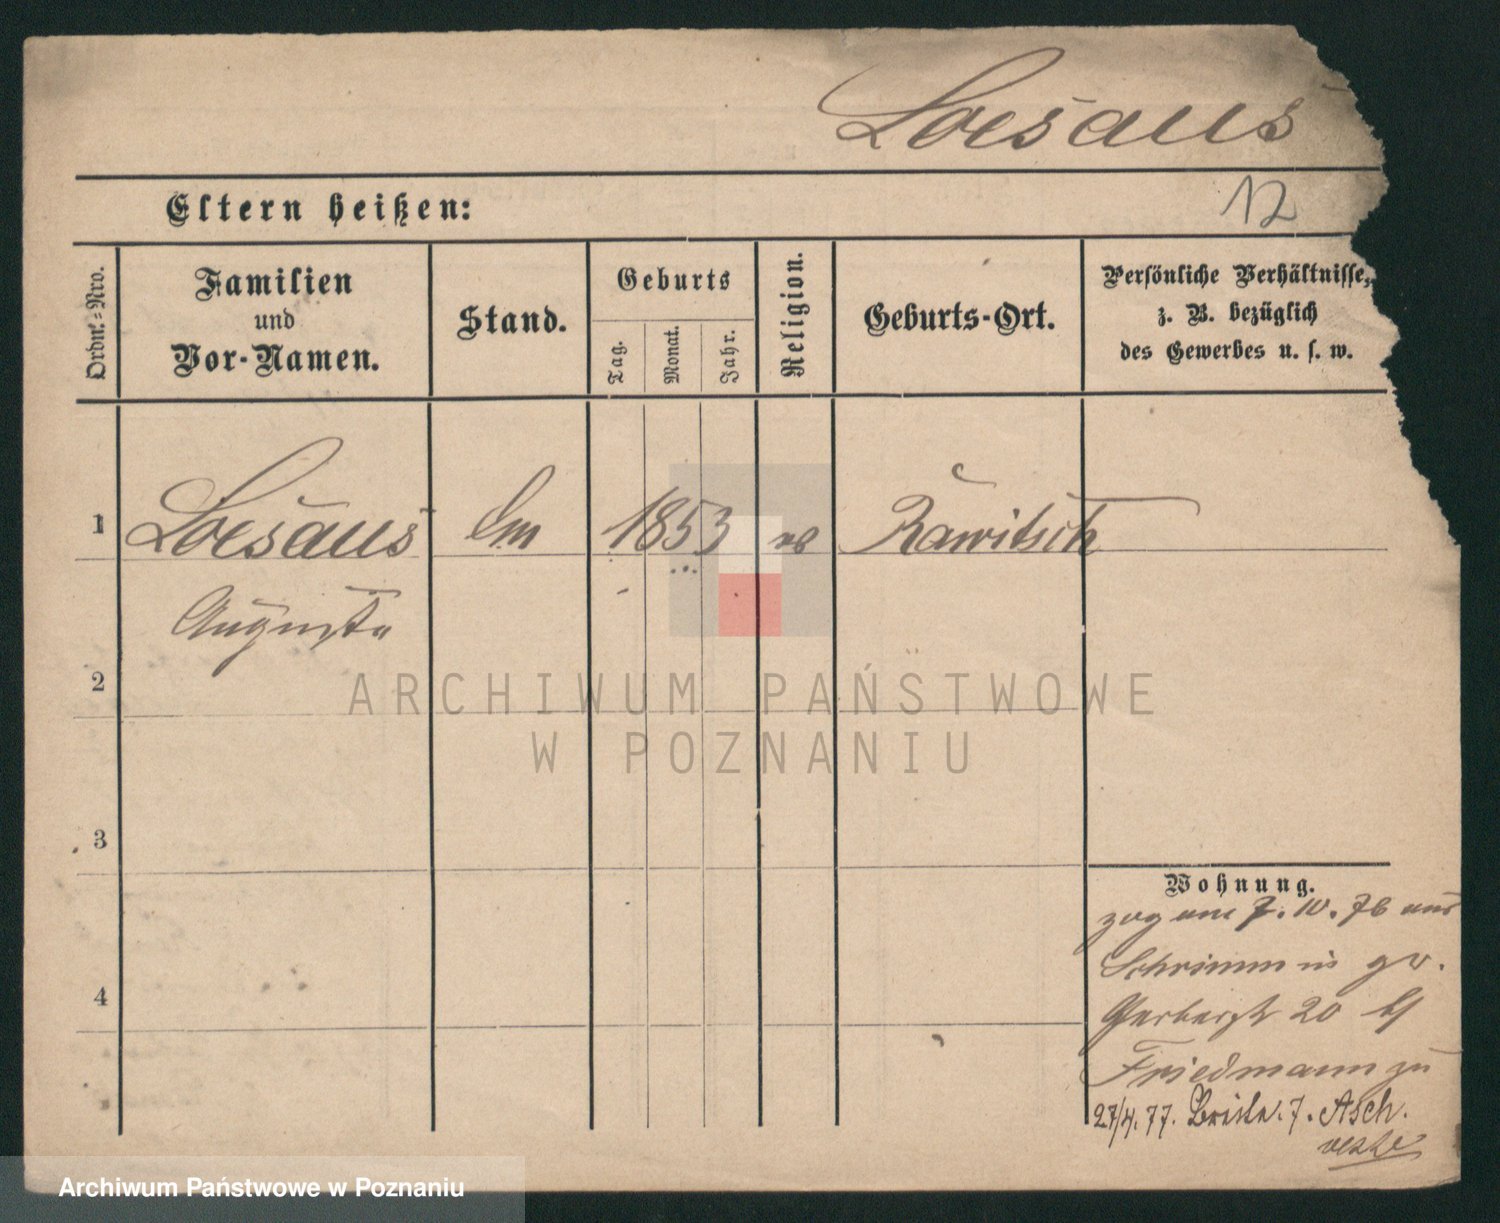 Loesaus
Eltern heißen:
12
Ordn.-Nro.
Familien
und
Vor-Namen.
Stand.
Geburts
Tag.
Monat.
Jahr.
Religion.
Geburts-Ort.
Persönliche Verhältnisse,
z. B. bezüglich
des Gewerbes u. s. w.
1
Loesaus
1853
Rawitsch
Augusta
2
ARCHIWUM PAŃSTWOWE
W POZNANIU
3
Wohnung.
zog am 7. 10. 76 aus
Schrimm in gr.
4
Gerberstr 20 bei
Friedmann zu
27/4. 77. 7. Asch.
Archiwum Państwowe w Poznaniu